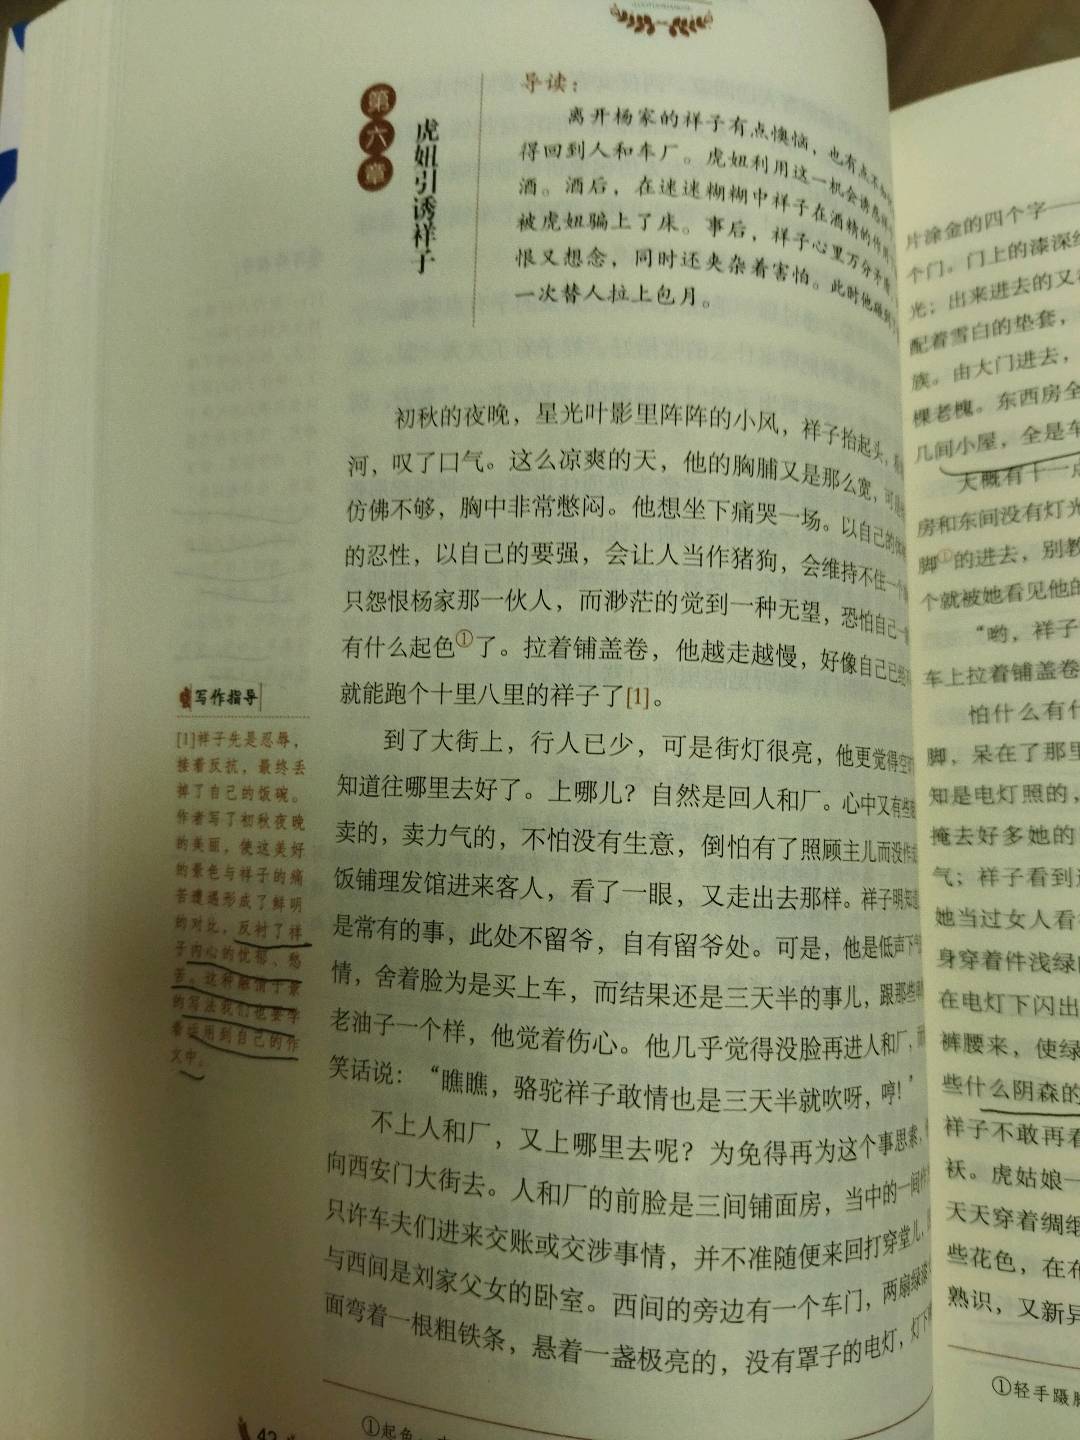 第六章
虎妞引诱祥子
导读：
离开杨家的祥子有点懊恼，也有点不
得回到人和车厂。虎妞利用这一机会诱惑
酒。酒后，在迷迷糊糊中祥子在酒精的作用
被虎妞骗上了床。事后，祥子心里万分矛盾，
恨又想念，同时还夹杂着害怕。此时他碰到
一次替人拉上包月。
初秋的夜晚，星光叶影里阵阵的小风，祥子抬起头，
河，叹了口气。这么凉爽的天，他的胸脯又是那么宽，可
仿佛不够，胸中非常憋闷。他想坐下痛哭一场。以自己的
的忍性，以自己的要强，会让人当作猪狗，会维持不住一个
只怨恨杨家那一伙人，而渺茫的觉到一种无望，恐怕自己一
有什么起色①了。拉着铺盖卷，他越走越慢，好像自己已经
就能跑个十里八里的祥子了[1]。
到了大街上，行人已少，可是街灯很亮，他更觉得空
知道往哪里去好了。上哪儿？自然是回人和厂。心中又有些
卖的，卖力气的，不怕没有生意，倒怕有了照顾主儿而没作
饭铺理发馆进来客人，看了一眼，又走出去那样。祥子明知道
是常有的事，此处不留爷，自有留爷处。可是，他是低声下气
情，舍着脸为是买上车，而结果还是三天半的事儿，跟那些
老油子一个样，他觉着伤心。他几乎觉得没脸再进人和厂，而
笑话说：“瞧瞧，骆驼祥子敢情也是三天半就吹呀，哼！”
不上人和厂，又上哪里去呢？为免得再为这个事思索，
向西安门大街去。人和厂的前脸是三间铺面房，当中的一间作
只许车夫们进来交账或交涉事情，并不准随便来回打穿堂儿，
与西间是刘家父女的卧室。西间的旁边有一个车门，两扇绿漆
面弯着一根粗铁条，悬着一盏极亮的，没有罩子的电灯，灯下
写作指导
[1]祥子先是忍辱，
接着反抗，最终丢
掉了自己的饭碗。
作者写了初秋夜晚
的美丽，使这美好
的景色与祥子的痛
苦遭遇形成了鲜明
的对比，反衬了祥
子内心的忧郁、愁
苦。这种融情于景
的写法我们也要学
着运用到自己的作
文中。
①起色
42
片涂金的四个字——
个门。门上的漆深
光；出来进去的又
配着雪白的垫套，
族。由大门进去，
棵老槐。东西房全
几间小屋，全是车
大概有十一点
房和东间没有灯光
脚①的进去，别教
个就被她看见他的
“哟，祥子
车上拉着铺盖卷
怕什么有什
脚，呆在了那里
知是电灯照的，
掩去好多她的
气；祥子看到
她当过女人看
身穿着件浅绿
在电灯下闪出
裤腰来，使绿
些什么阴森的
祥子不敢再看
袄。虎姑娘一
天天穿着绸
些花色，在
熟识，又新异
①轻手蹑脚